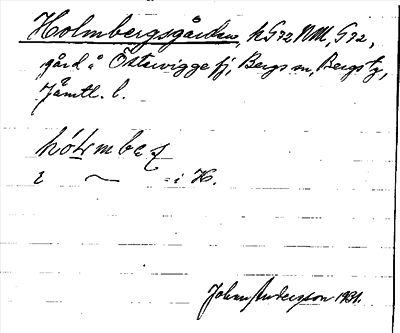 Holmbergsgården, k G72 NM, G72,
gård i Österwigge fj, Bergs sn, Bergs tg,
Jämtl. l.
i H.
John Andersson 1931.